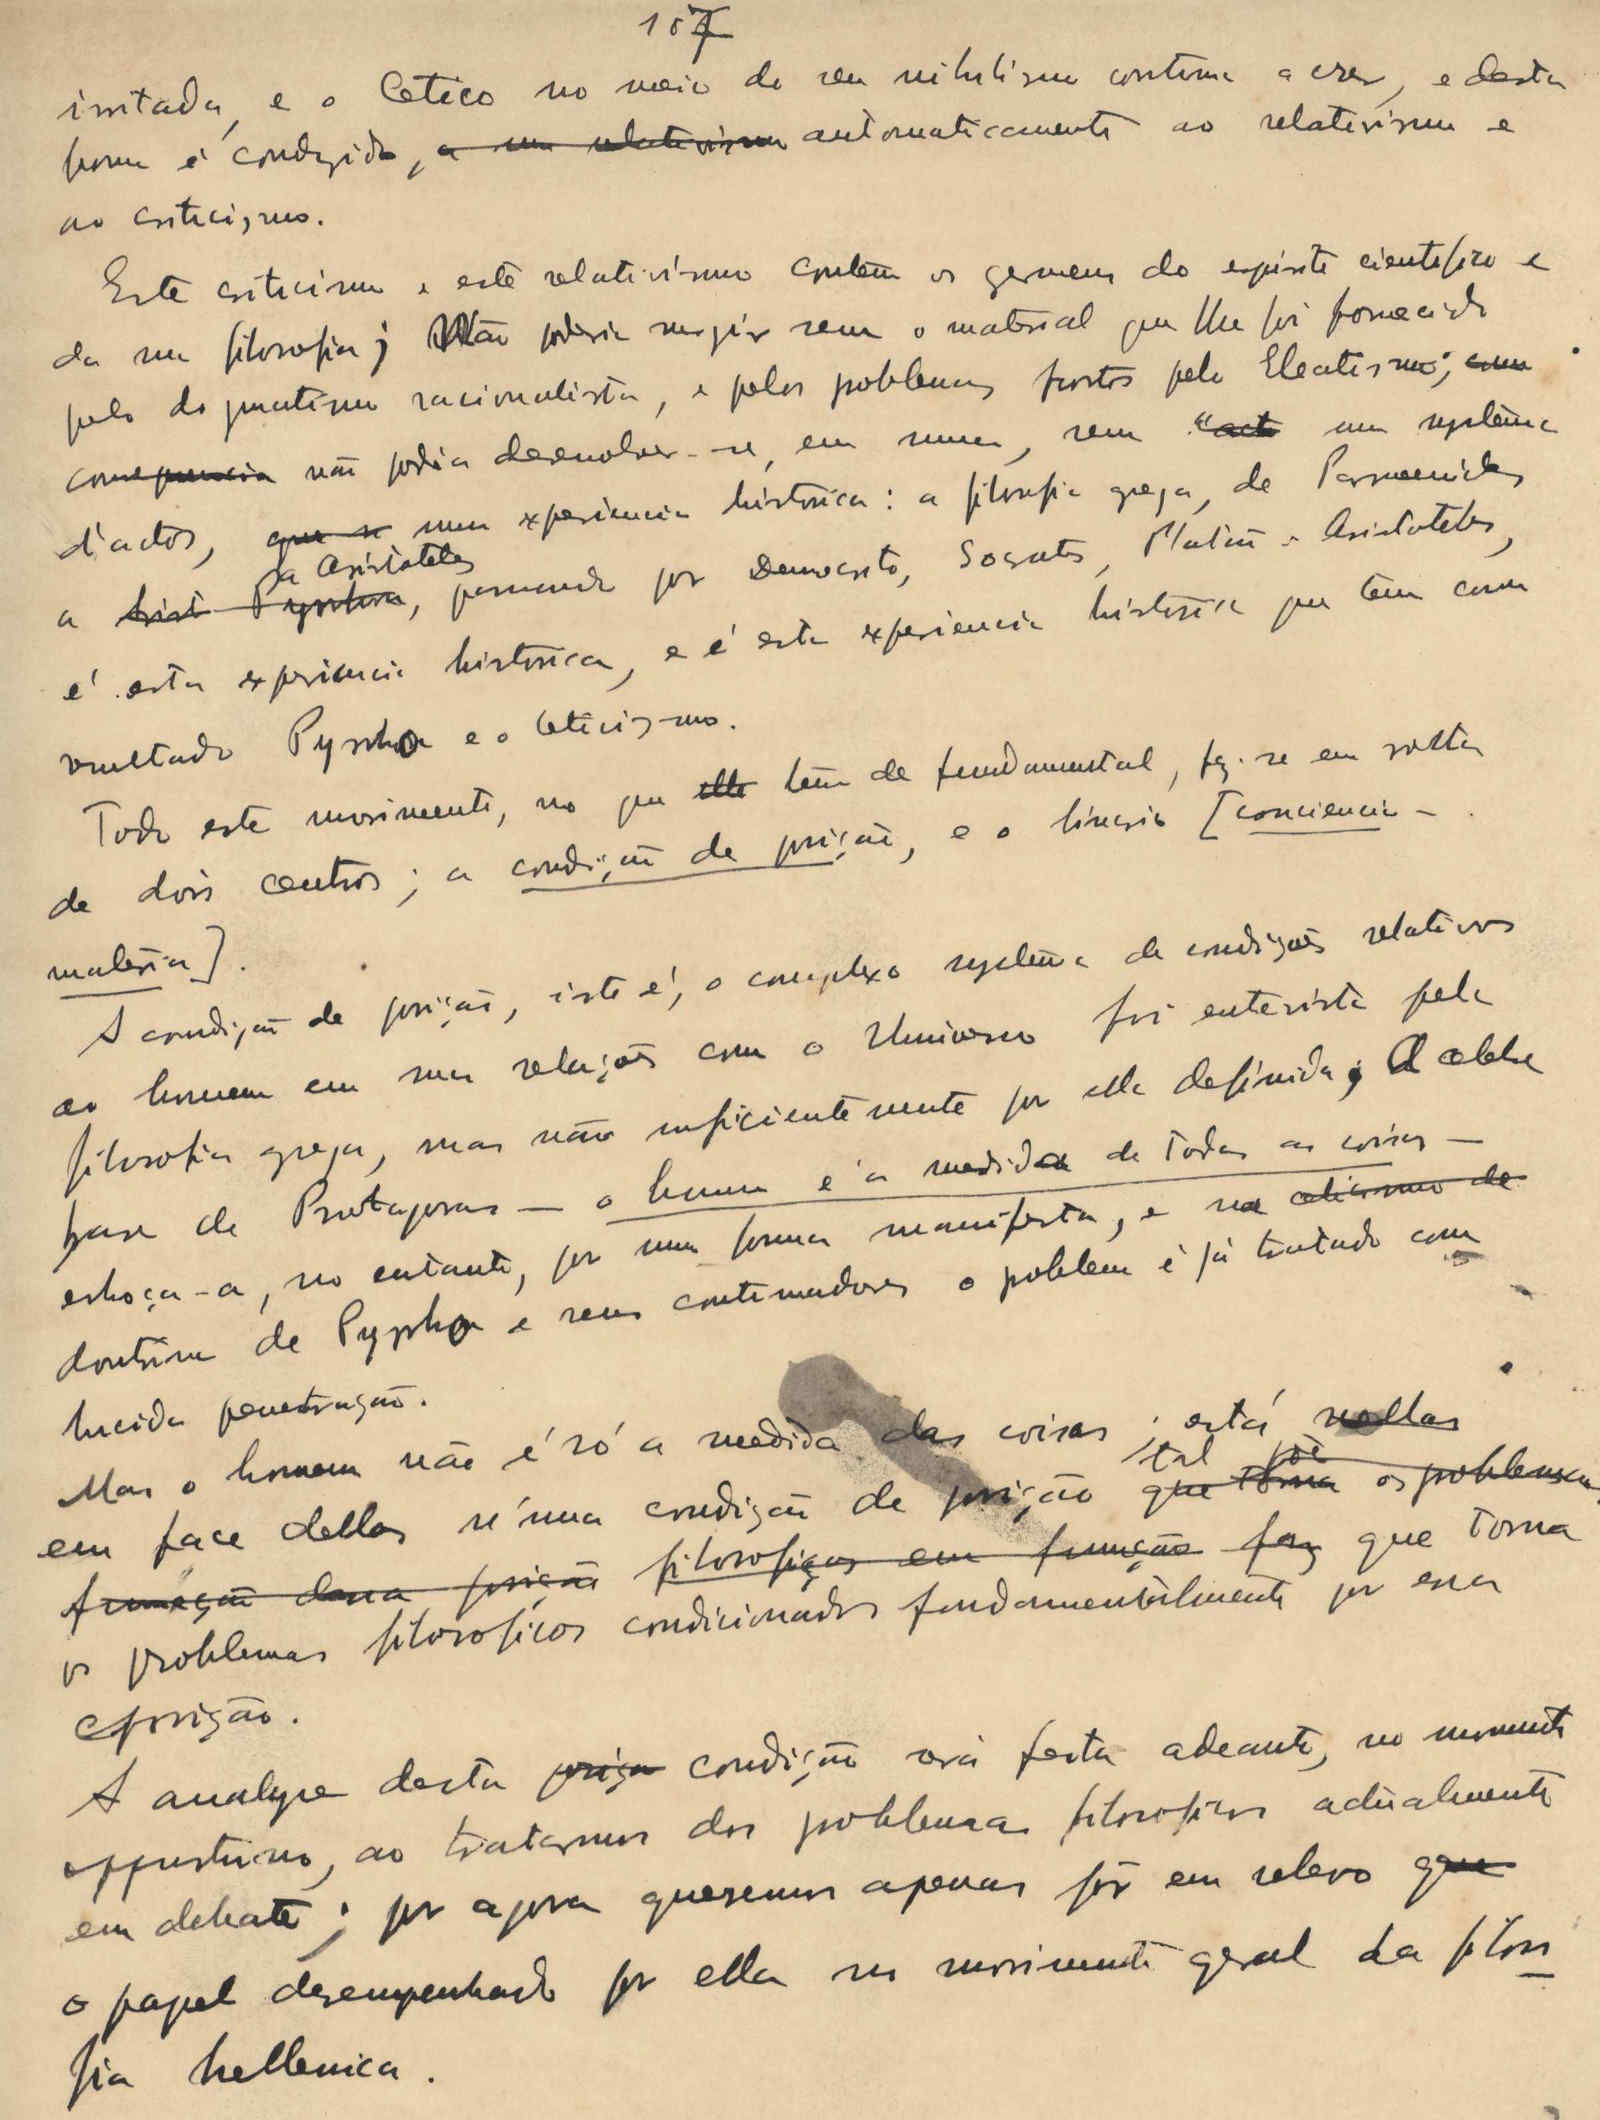 107
irritada, e o Cetico no meio do seu nihilismo continua a crer, e desta
forma é conduzido, a um relativismo automaticamente ao relativismo e
ao criticismo.
Este criticismo e este relativismo contêm os germens do espirito cientifico e
da sua filosofia; Não poderia surgir sem o material que lhe foi fornecido
pelo dogmatismo racionalista, e pelos problemas postos pelo Eleatismo; como
consequencia não podia desenvolver-se, em suma, sem um systema
d'actos, que se uma experiencia historica: a filosofia grega, de Parmenides
a Aristoteles
a Pyrrhon, passando por Democrito, Socrates, Platão e Aristoteles,
é esta experiencia historica, e é esta experiencia historica que tem como
resultado Pyrrho e o Ceticismo.
Todo este movimento, no que elle tem de fundamental, fez-se em volta
de dois centros; a condição de posição, e o binario [conciencia-
materia].
A condição de posição, isto é, o complexo systema de condições relativas
ao homem em suas relações com o Universo foi entrevista pela
filosofia grega, mas não suficientemente por ella definida; A celebre
frase de Protagoras — o homem é a medida de todas as coisas —
esboça-a, no entanto, por uma forma manifesta, e na ceticismo de
doutrina de Pyrrho e seus continuadores o problema é já tratado com
lucida penetração.
Mas o homem não é só a medida das coisas; está nellas
tal põe
em face dellas n'uma condição de posição que torna os problemas
função dessa posição filosoficos em função faz que torna
os problemas filosoficos condicionados fundamentalmente por essa
posição.
A analyse desta posiça condição será feita adeante, no momento
opportuno, ao tratarmos dos problemas filosoficos actualmente
em debate; por agora queremos apenas pôr em relevo que
o papel desempenhado por ella no movimento geral da filoso
fia hellenica.